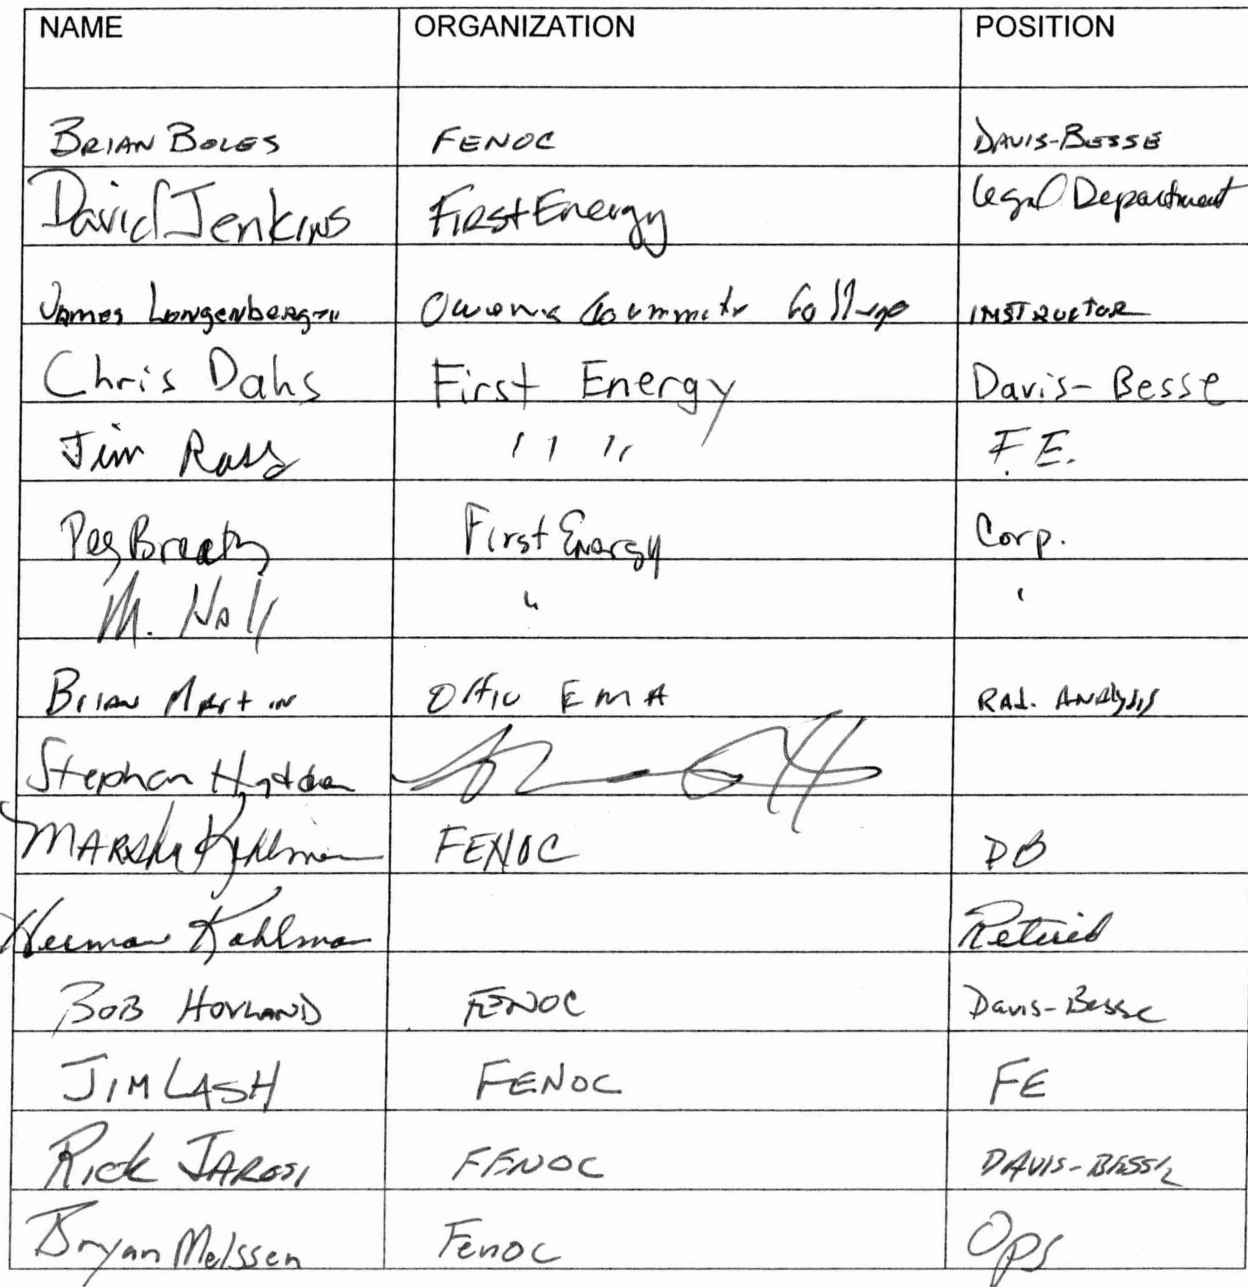 NAME ORGANIZATION POSITION
BRIAN BOLES FENOC DAVIS-BESSE
David Jenkins FirstEnergy Legal Department
James Longenberger Owens INSTRUCTOR
Chris Dahs First Energy Davis-Besse
Jim Ross " " F.E.
Peg First Energy Corp.
M. " "
Brian Martin OHIO EMA RAD. ANALYSIS
Stephan
MARSHA FENOC DB
Herman Kohlman Retired
BOB HOVLAND FENOC Davis-Besse
JIM LASH FENOC FE
Rick JAROSI FENOC DAVIS-BESSE
Bryan Melssen Fenoc Ops